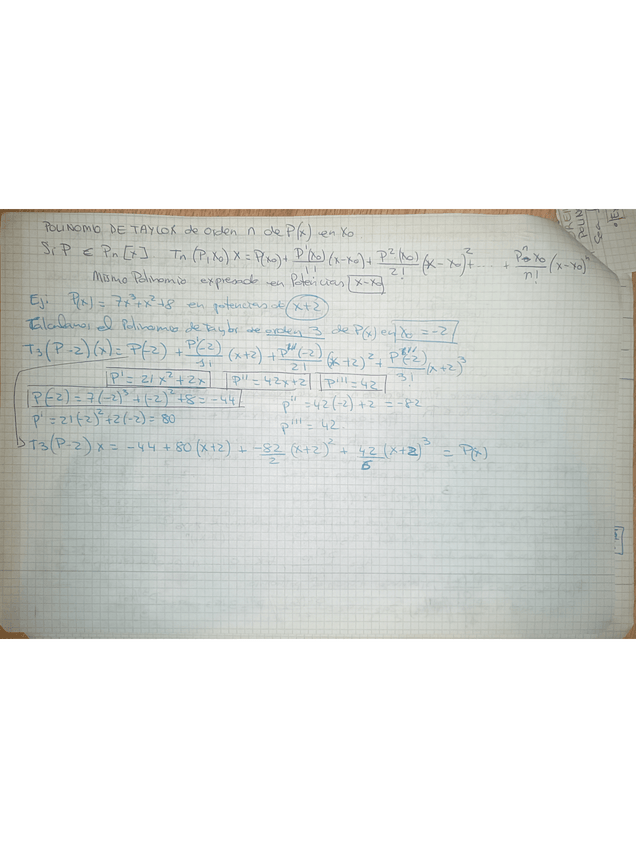 POLINOMIO DE TAYLOR de orden n de P(x) en x0
Si P ≤ Pn [x] Tn (P, x0) x = P(x0) + P'(x0)/1! (x-x0) + P²(x0)/2! (x-x0)² + ..... + Pⁿ x0/n! (x-x0)ⁿ
Mismo Polinomio expresado en Potencias x-x0
Ej: P(x) = 7x³+x²+8 en potencias de x+2
Calculamos el Polinomio de Taylor de orden 3 de P(x) en x0 = -2
T3 (P-2)(x) = P(-2) + P'(-2)/1! (x+2) + P''(-2)/2! (x+2)² + P'''(-2)/3! (x+2)³
P' = 21x²+2x P'' = 42x+2 P''' = 42
P(-2) = 7(-2)³+(-2)²+8 = -44 P'' = 42(-2)+2 = -82
P' = 21(-2)²+2(-2) = 80 P''' = 42.
T3 (P-2) x = -44 + 80 (x+2) + -82/2 (x+2)² + 42/6 (x+2)³ = P(x)